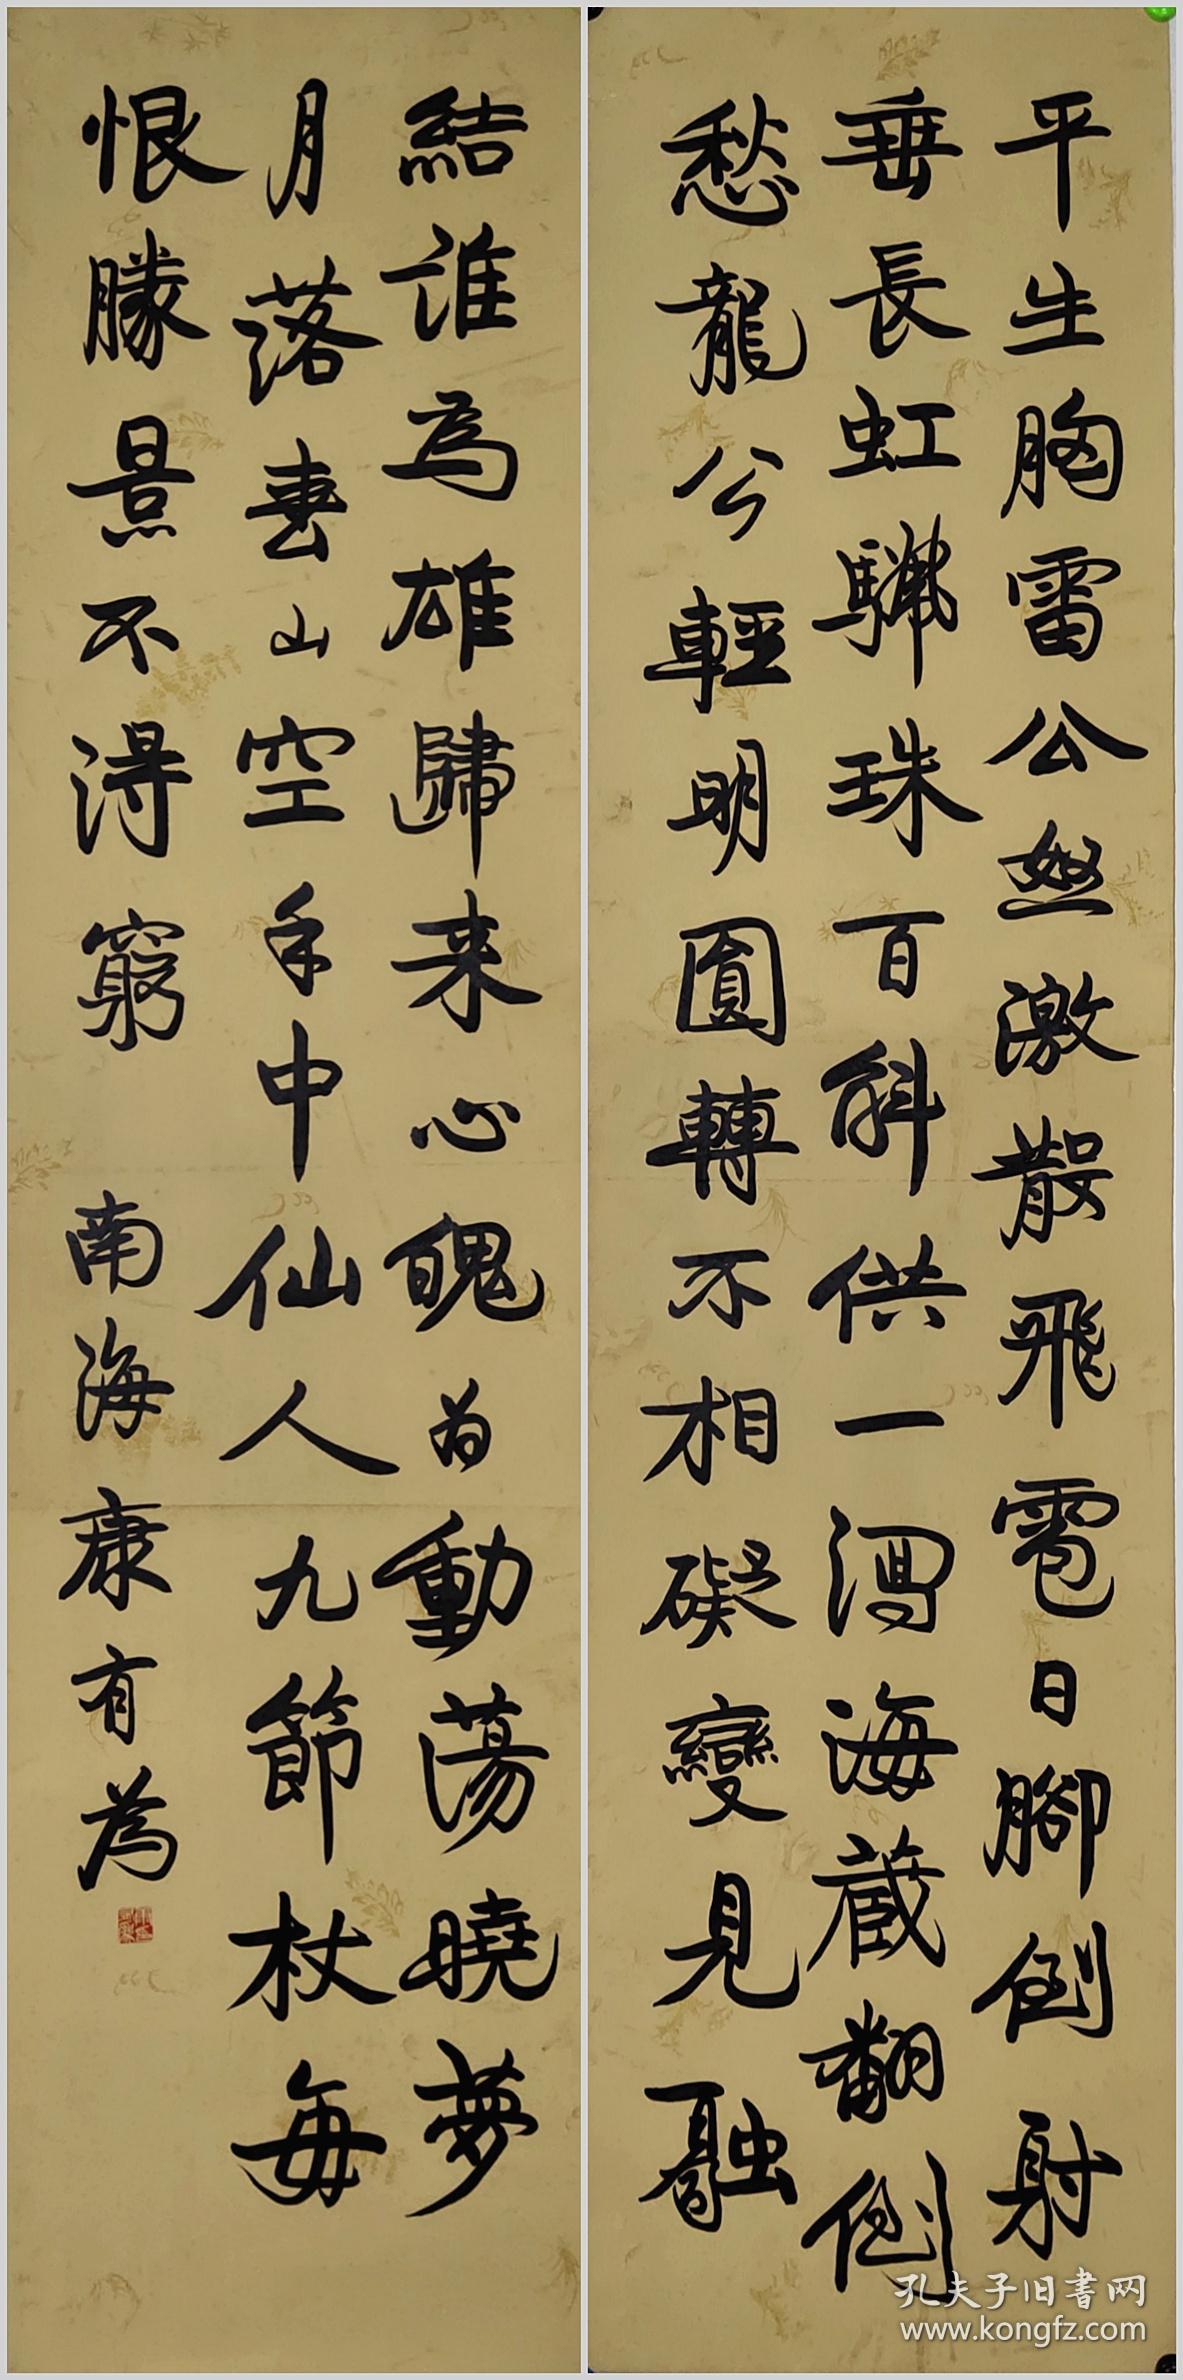 平生胸雷公怒激散飛雹日腳倒射
垂長虹驪珠百斛供一瀉海藏翻倒
愁龍公輕明圓轉不相礙變見融
結誰為雄歸来心魄為動蕩曉夢
月落春山空手中仙人九節杖每
恨勝景不得窮
南海康有為
孔夫子旧書网
www.kongfz.com